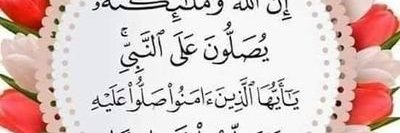 إِنَّ ٱللَّهَ وَمَلَـٰٓئِكَتَهُۥ
يُصَلُّونَ عَلَى ٱلنَّبِيِّۚ
يَـٰٓأَيُّهَا ٱلَّذِينَ ءَامَنُواْ صَلُّواْ عَلَيْهِ